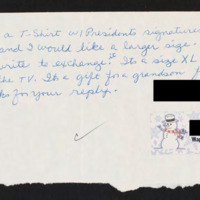 a T-Shirt w/ Presidents signature
and I would like a larger size.
write to exchange it. Its a size XL
the TV. Its a gift for a grandson
ks for your reply.